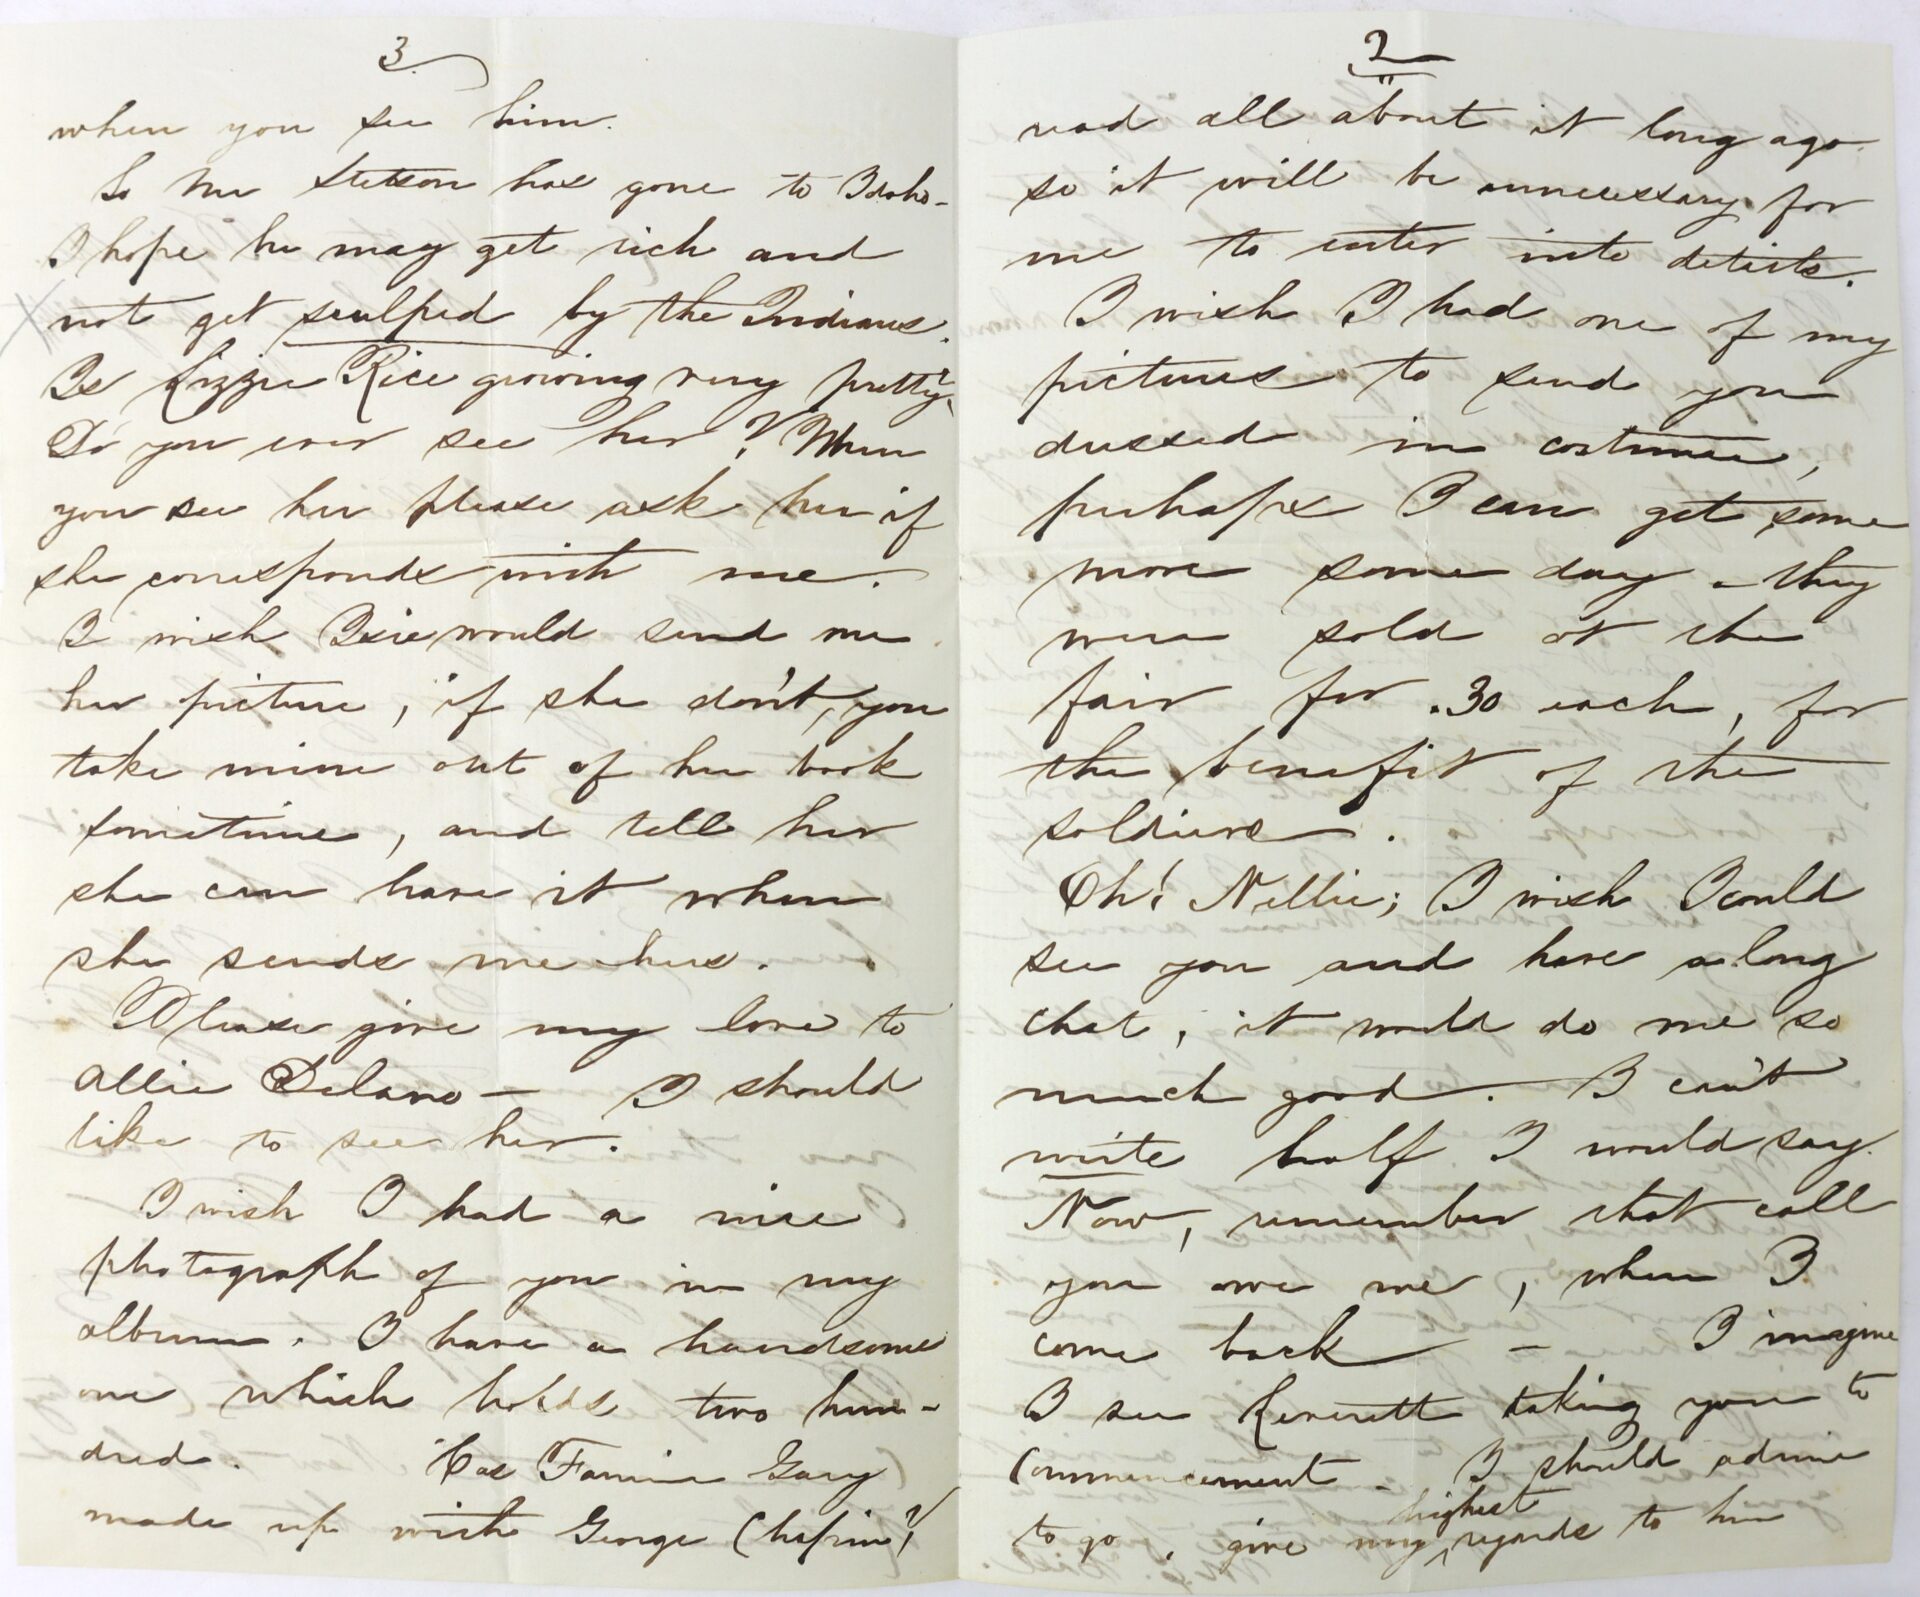 2
read all about it long ago
so it will be unnecessary for
me to enter into details.
I wish I had one of my
pictures to send you
dressed in costume,
perhaps I can get some
more some day - they
were sold at the
fair for .30 each, for
the benefit of the
soldiers.
Oh! Nellie; I wish I could
see you and have a long
chat, it would do me so
much good. I can't
write half I would say.
Now, remember that call
you owe me, when I
come back - I imagine
I see Leverett taking you to
Commencement - I should admire
to go, give my highest regards to him
3
when you see him.
So Mr Stetson has gone to Idaho-
I hope he may get rich and
not get sculped by the Indians.
Is Lizzie Rice growing very pretty?
Do you ever see her? When
you see her please ask her if
she corresponds with me.
I wish Isie would send me
her picture, if she don't, you
take mine out of her book
sometime, and tell her
she can have it when
she sends me hers.
Please give my love to
Allie Delano - I should
like to see her.
I wish I had a nice
photograph of you in my
album. I have a handsome
one which holds two hun-
dred. Has Fannie Gary
made up with George Chapin?